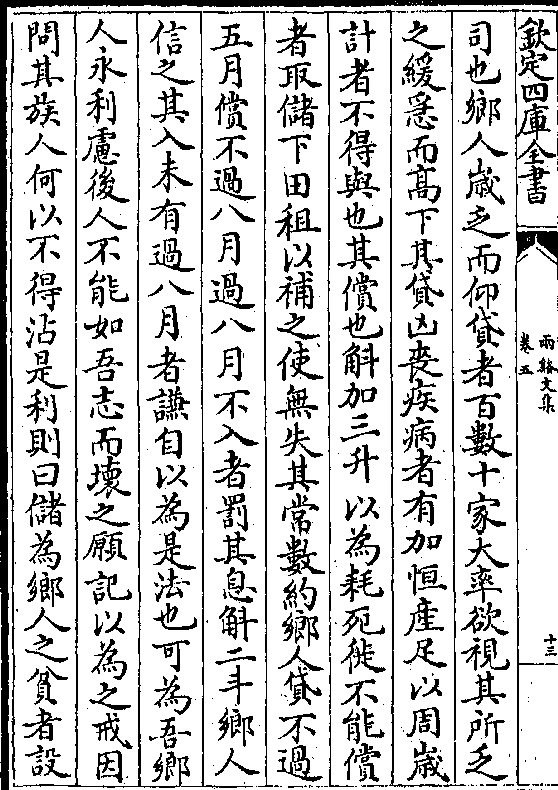 欽定四庫全書
兩谿文集
卷五
十三
司也鄉人歲乏而仰貸者百數十家大率欲視其所乏
之緩急而髙下其貸凶喪疾病者有加恒産足以周歲
計者不得與也其償也斛加三升以為耗死徙不能償
者取儲下田租以補之使無失其常數約鄉人貸不過
五月償不過八月過八月不入者罰其息斛二斗鄉人
信之其入未有過八月者謙自以為是法也可為吾鄉
人永利慮後人不能如吾志而壞之願記以為之戒因
問其族人何以不得沾是利則曰儲為鄉人之貧者設